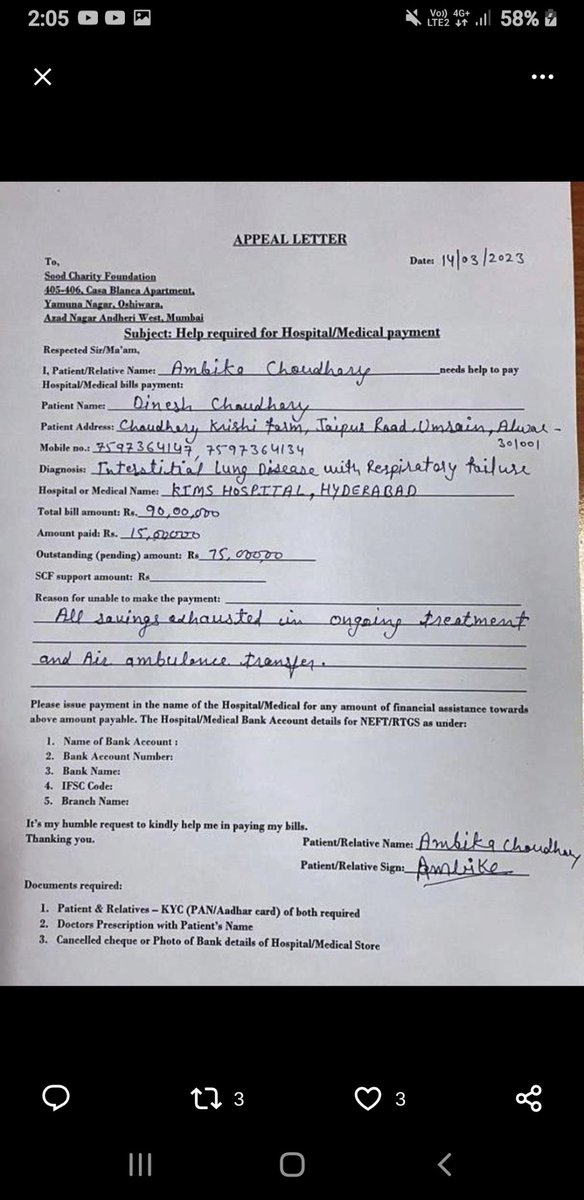 2:05
Vo)) 4G+
LTE2 58%
APPEAL LETTER
To,
Date: 14/03/2023
Sood Charity Foundation
405-406, Casa Blanca Apartment,
Yamuna Nagar, Oshiwara,
Azad Nagar Andheri West, Mumbai
Subject: Help required for Hospital/Medical payment
Respected Sir/Ma'am,
I, Patient/Relative Name: Ambika Choudhary needs help to pay
Hospital/Medical bills payment:
Patient Name: Dinesh Choudhary
Patient Address: Choudhary Krishi farm, Jaipur Road, Umrain, Alwar-
301001
Mobile no.: 7597364147, 7597364134
Diagnosis: Interstitial Lung Disease with Respiratory failure
Hospital or Medical Name: KIMS HOSPITAL, HYDERABAD
Total bill amount: Rs. 90,00,000
Amount paid: Rs. 15,00000
Outstanding (pending) amount: Rs 75,00000
SCF support amount: Rs
Reason for unable to make the payment:
All savings exhausted in ongoing treatment
and Air ambulance transfer.
Please issue payment in the name of the Hospital/Medical for any amount of financial assistance towards
above amount payable. The Hospital/Medical Bank Account details for NEFT/RTGS as under:
1. Name of Bank Account :
2. Bank Account Number:
3. Bank Name:
4. IFSC Code:
5. Branch Name:
It's my humble request to kindly help me in paying my bills.
Thanking you.
Patient/Relative Name: Ambika Choudhary
Patient/Relative Sign: Ambika
Documents required:
1. Patient & Relatives – KYC (PAN/Aadhar card) of both required
2. Doctors Prescription with Patient's Name
3. Cancelled cheque or Photo of Bank details of Hospital/Medical Store
3
3